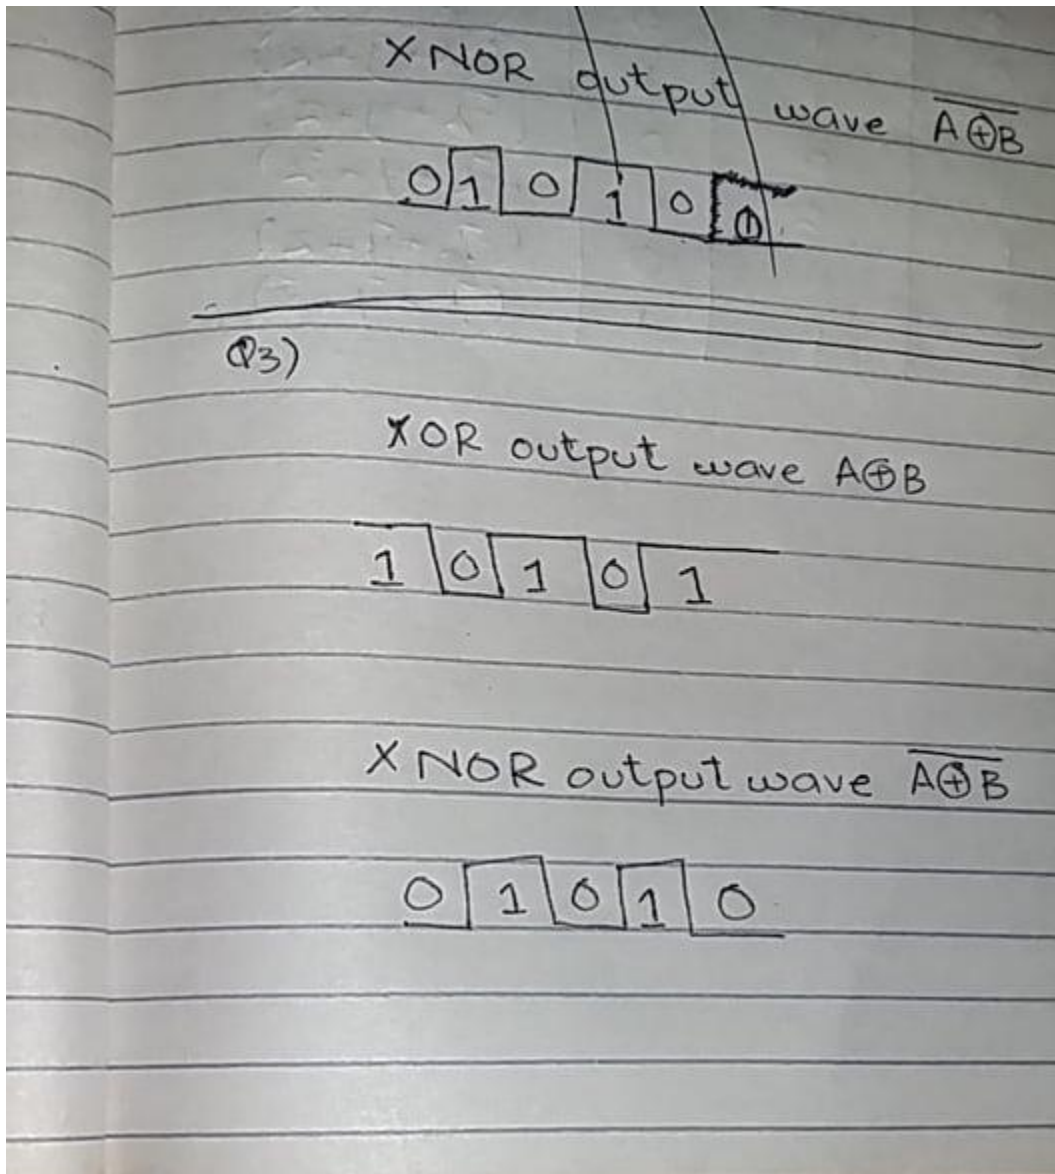 XNOR output wave A⊕B
0 1 0 1 0
Q3)
XOR output wave A⊕B
1 0 1 0 1
XNOR output wave A⊕B
0 1 0 1 0